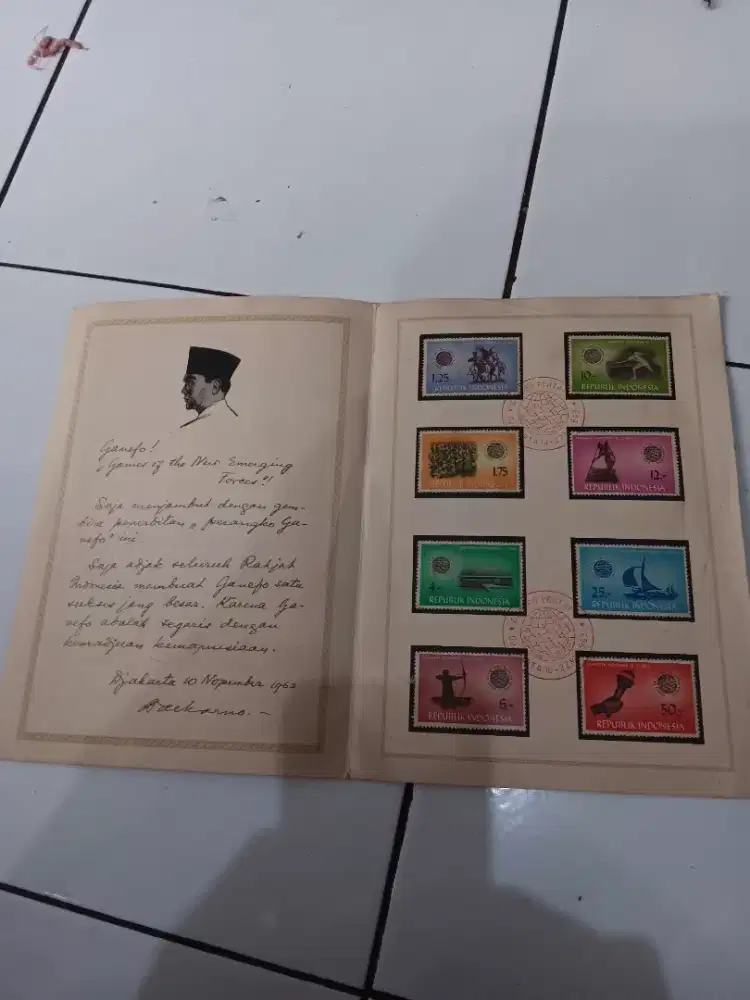 Ganefo!
"Games of the New Emerging
Forces"!
Saja menjambut dengan gem-
bira penerbitan "perangko Ga-
nefo" ini.
Saja adjak seluruh Rakjat
Indonesia membuat Ganefo satu
sukses jang besar. Karena Ga-
nefo adalah segaris dengan
kemadjuan kemanusiaan.
Djakarta 10 Nopember 1963
Soekarno.-
1.25
REPUBLIK INDONESIA
10.-
REPUBLIK INDONESIA
1.75
12.-
REPUBLIK INDONESIA
4.-
REPUBLIK INDONESIA
25.-
REPUBLIK INDONESIA
6.-
REPUBLIK INDONESIA
50.-
REPUBLIK INDONESIA